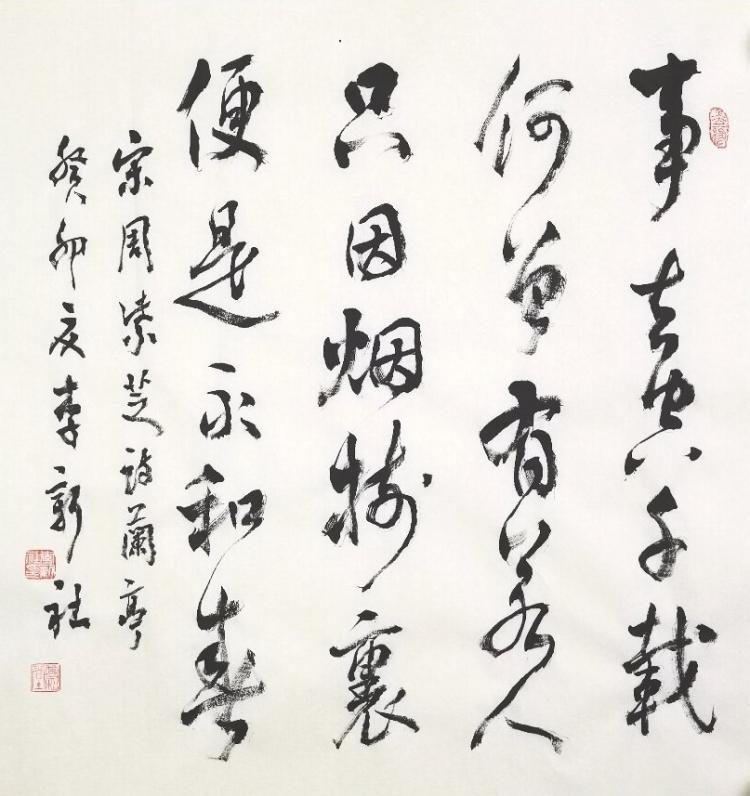 事去空千載
何曾有若人
只因烟樹裏
便是永和春
宋周紫芝詩蘭亭
癸卯夏李新社